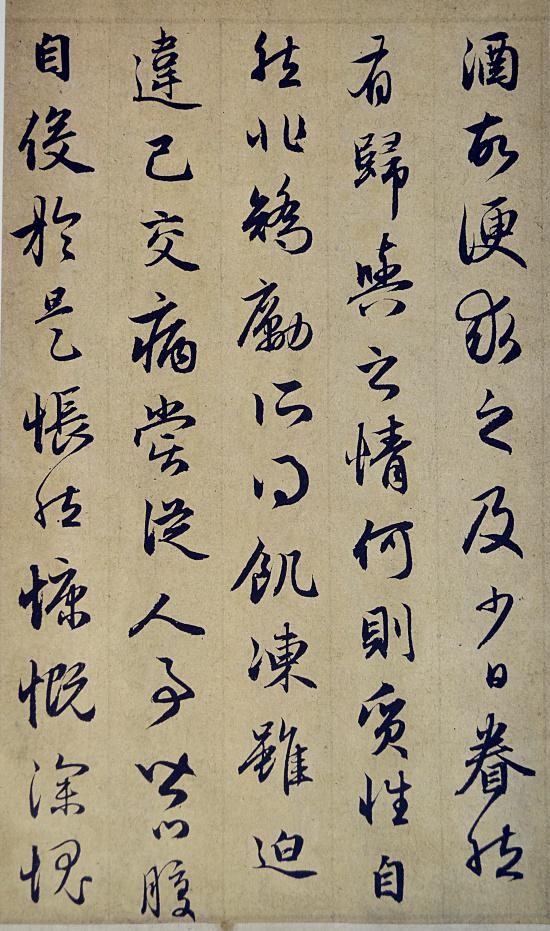 酒故便求之及少日眷然
有歸歟之情何則質性自
然非矯勵所得飢凍雖迫
違己交病嘗從人事皆口腹
自役於是悵然慷慨深愧